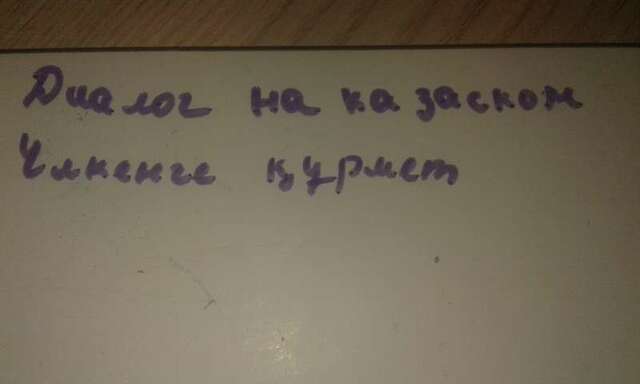 Диалог на казаском
Үлкенге құрмет